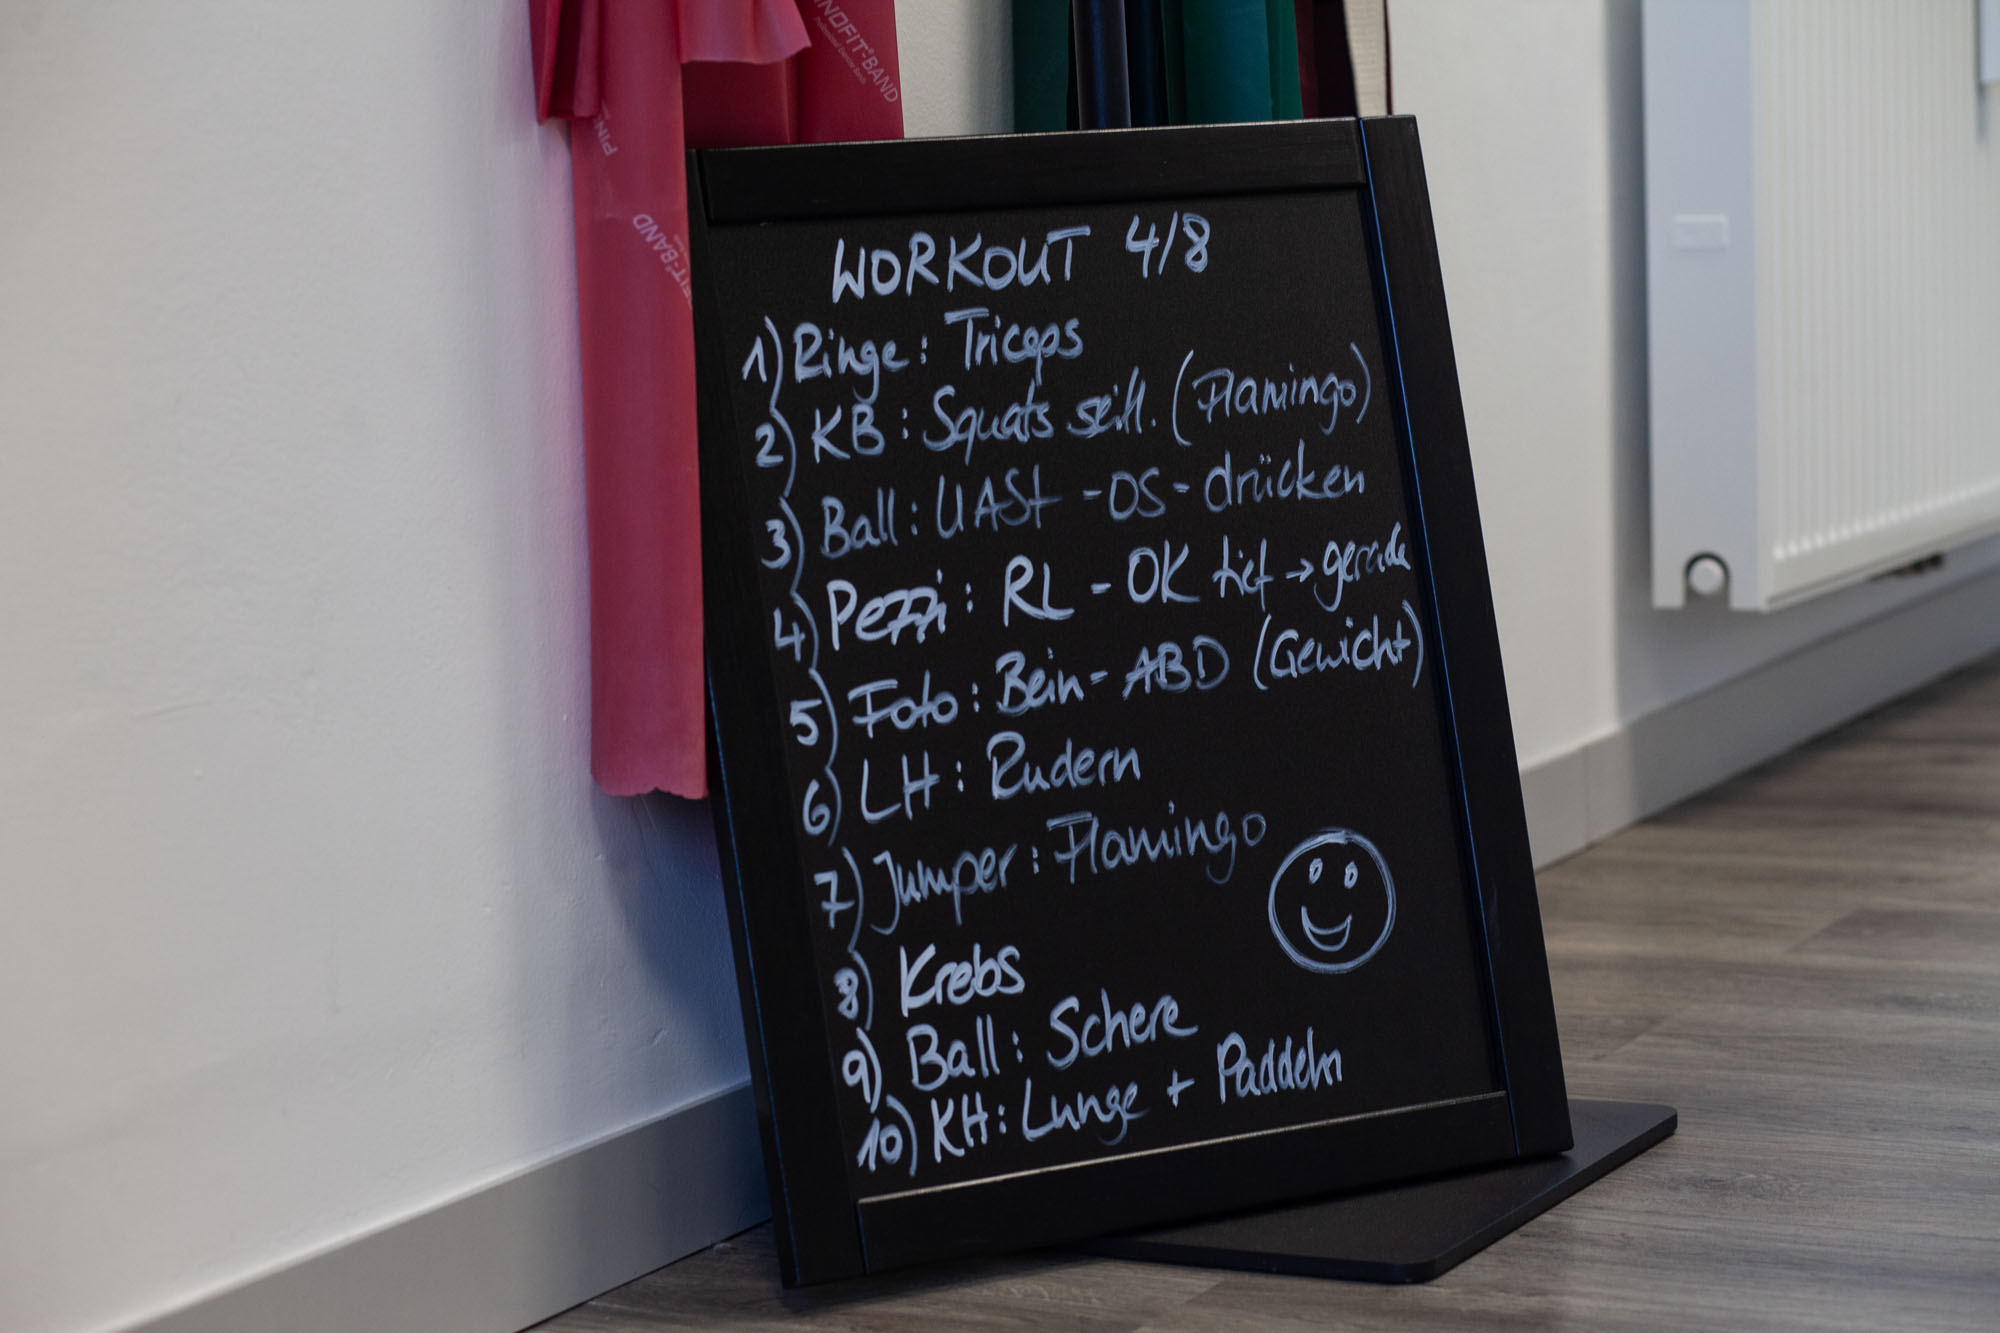 PINOFIT®-BAND
WORKOUT 4/8
1) Ringe: Triceps
2) KB: Squats seitl. (Flamingo)
3) Ball: UASt-OS-drücken
4) Pezzi: RL-OK tief → gerade
5) Foto: Bein-ABD (Gewicht)
6) LH: Rudern
7) Jumper: Flamingo
8) Krebs
9) Ball: Schere
10) KH: Lunge + Paddeln